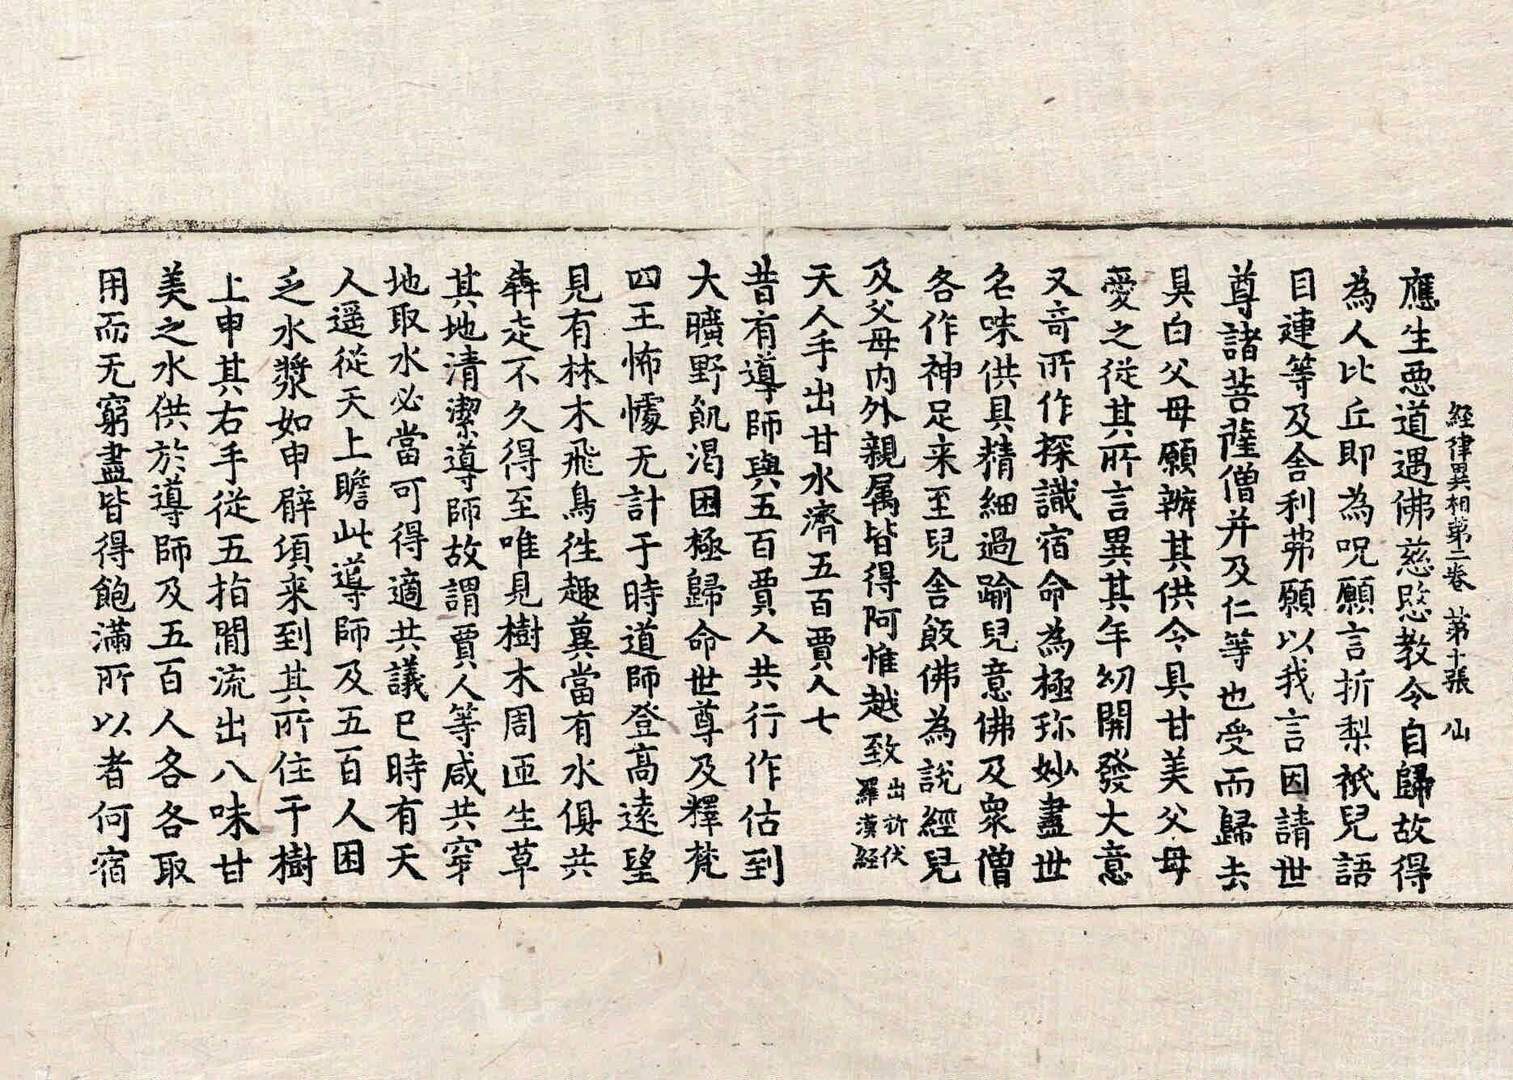 應生惡道遇佛慈愍教令自歸故得
經律異相苐二卷 苐十張 仙
為人比丘即為呪願言折梨祇兒語
目連等及舍利弗願以我言因請世
尊諸菩薩僧并及仁等也受而歸去
具白父母願辦其供令具甘美父母
愛之從其所言異其年幼開發大意
又奇所作探識宿命為極珎妙盡世
名味供具精細過踰兒意佛及衆僧
各作神足来至兒舍飯佛為說經兒
及父母内外親属皆得阿惟越致 出祈伏
羅漢經
天人手出甘水濟五百賈人七
昔有導師與五百賈人共行作估到
大曠野飢渴困極歸命世尊及釋梵
四王怖懅无計于時道師登高遠望
見有林木飛鳥往趣冀當有水俱共
犇走不久得至唯見樹木周迊生草
其地清潔導師故謂賈人等咸共穿
地取水必當可得適共議已時有天
人遥從天上瞻此導師及五百人困
乏水漿如申臂頃来到其所住于樹
上申其右手從五指間流出八味甘
美之水供於導師及五百人各各取
用而无窮盡皆得飽滿所以者何宿